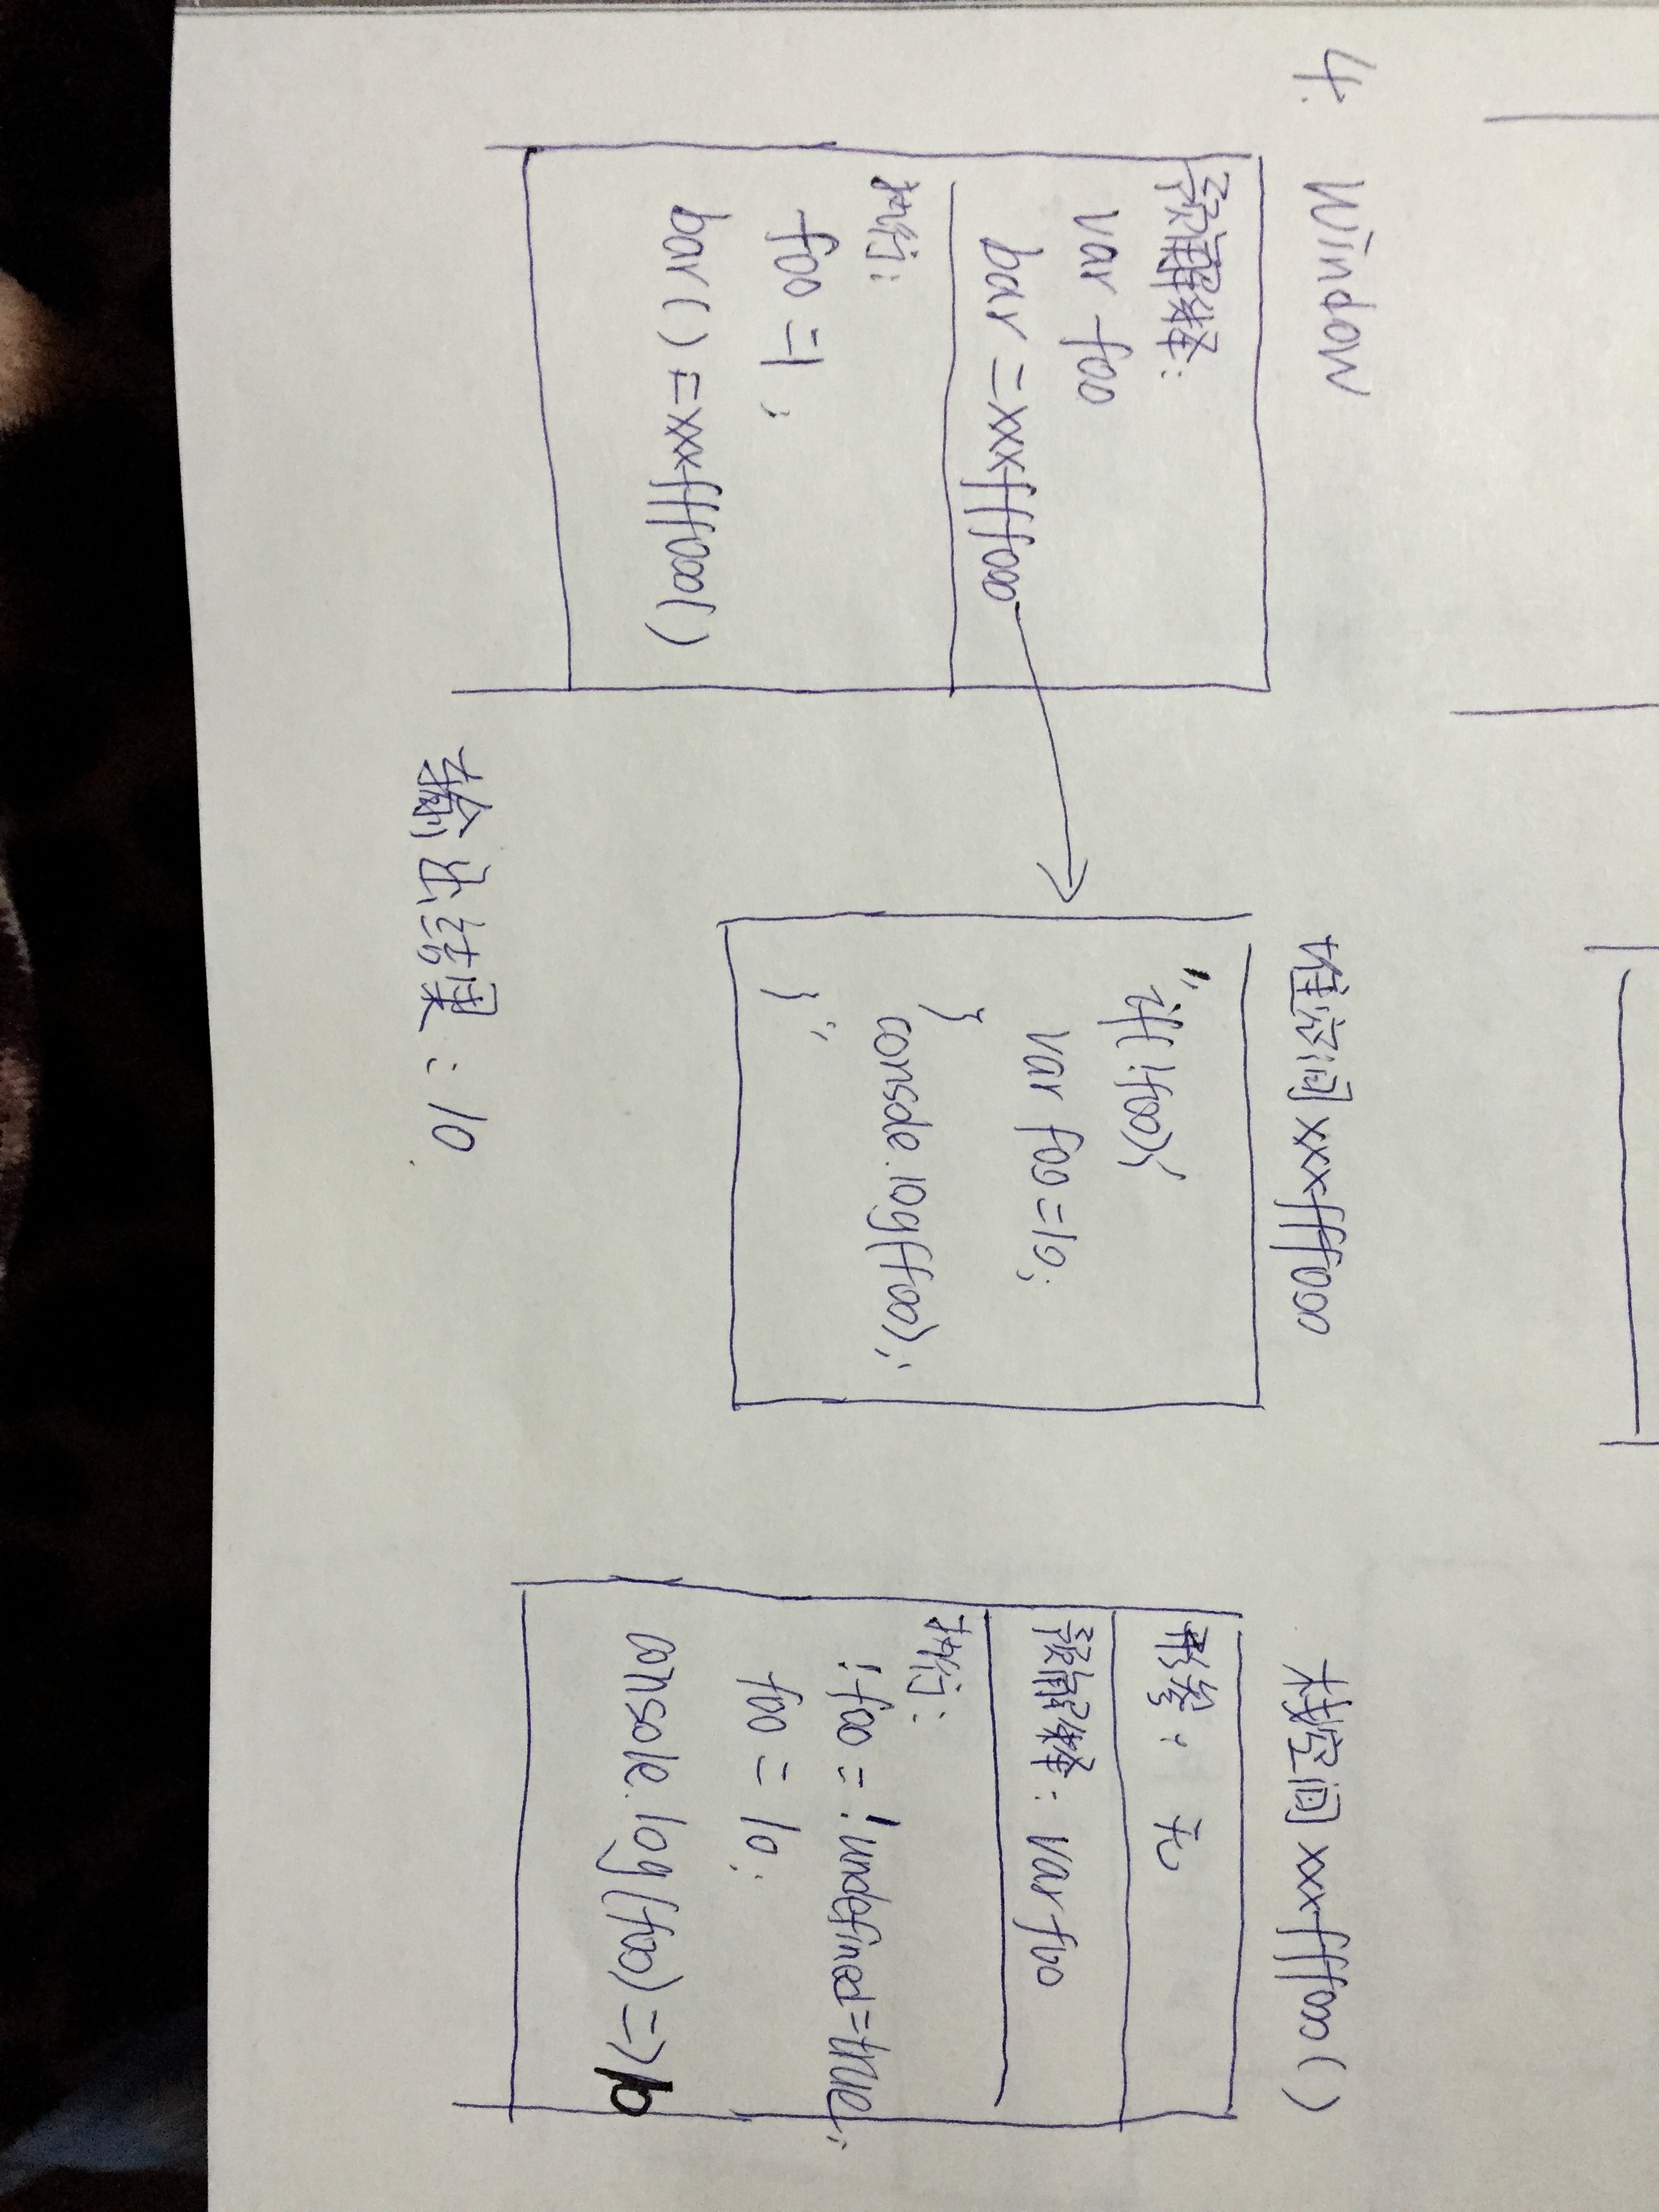 4. Window
预解释:
var foo
bar = xxxfffooo
执行:
foo = 1;
bar() = xxxfffooo()
堆空间 xxxfffooo
"if(!foo){
var foo = 10;
}
console.log(foo);
}"
栈空间 xxxfffooo()
形参: 无
预解释: var foo
执行:
!foo = !undefined = true;
foo = 10;
console.log(foo) => 10
输出结果: 10.